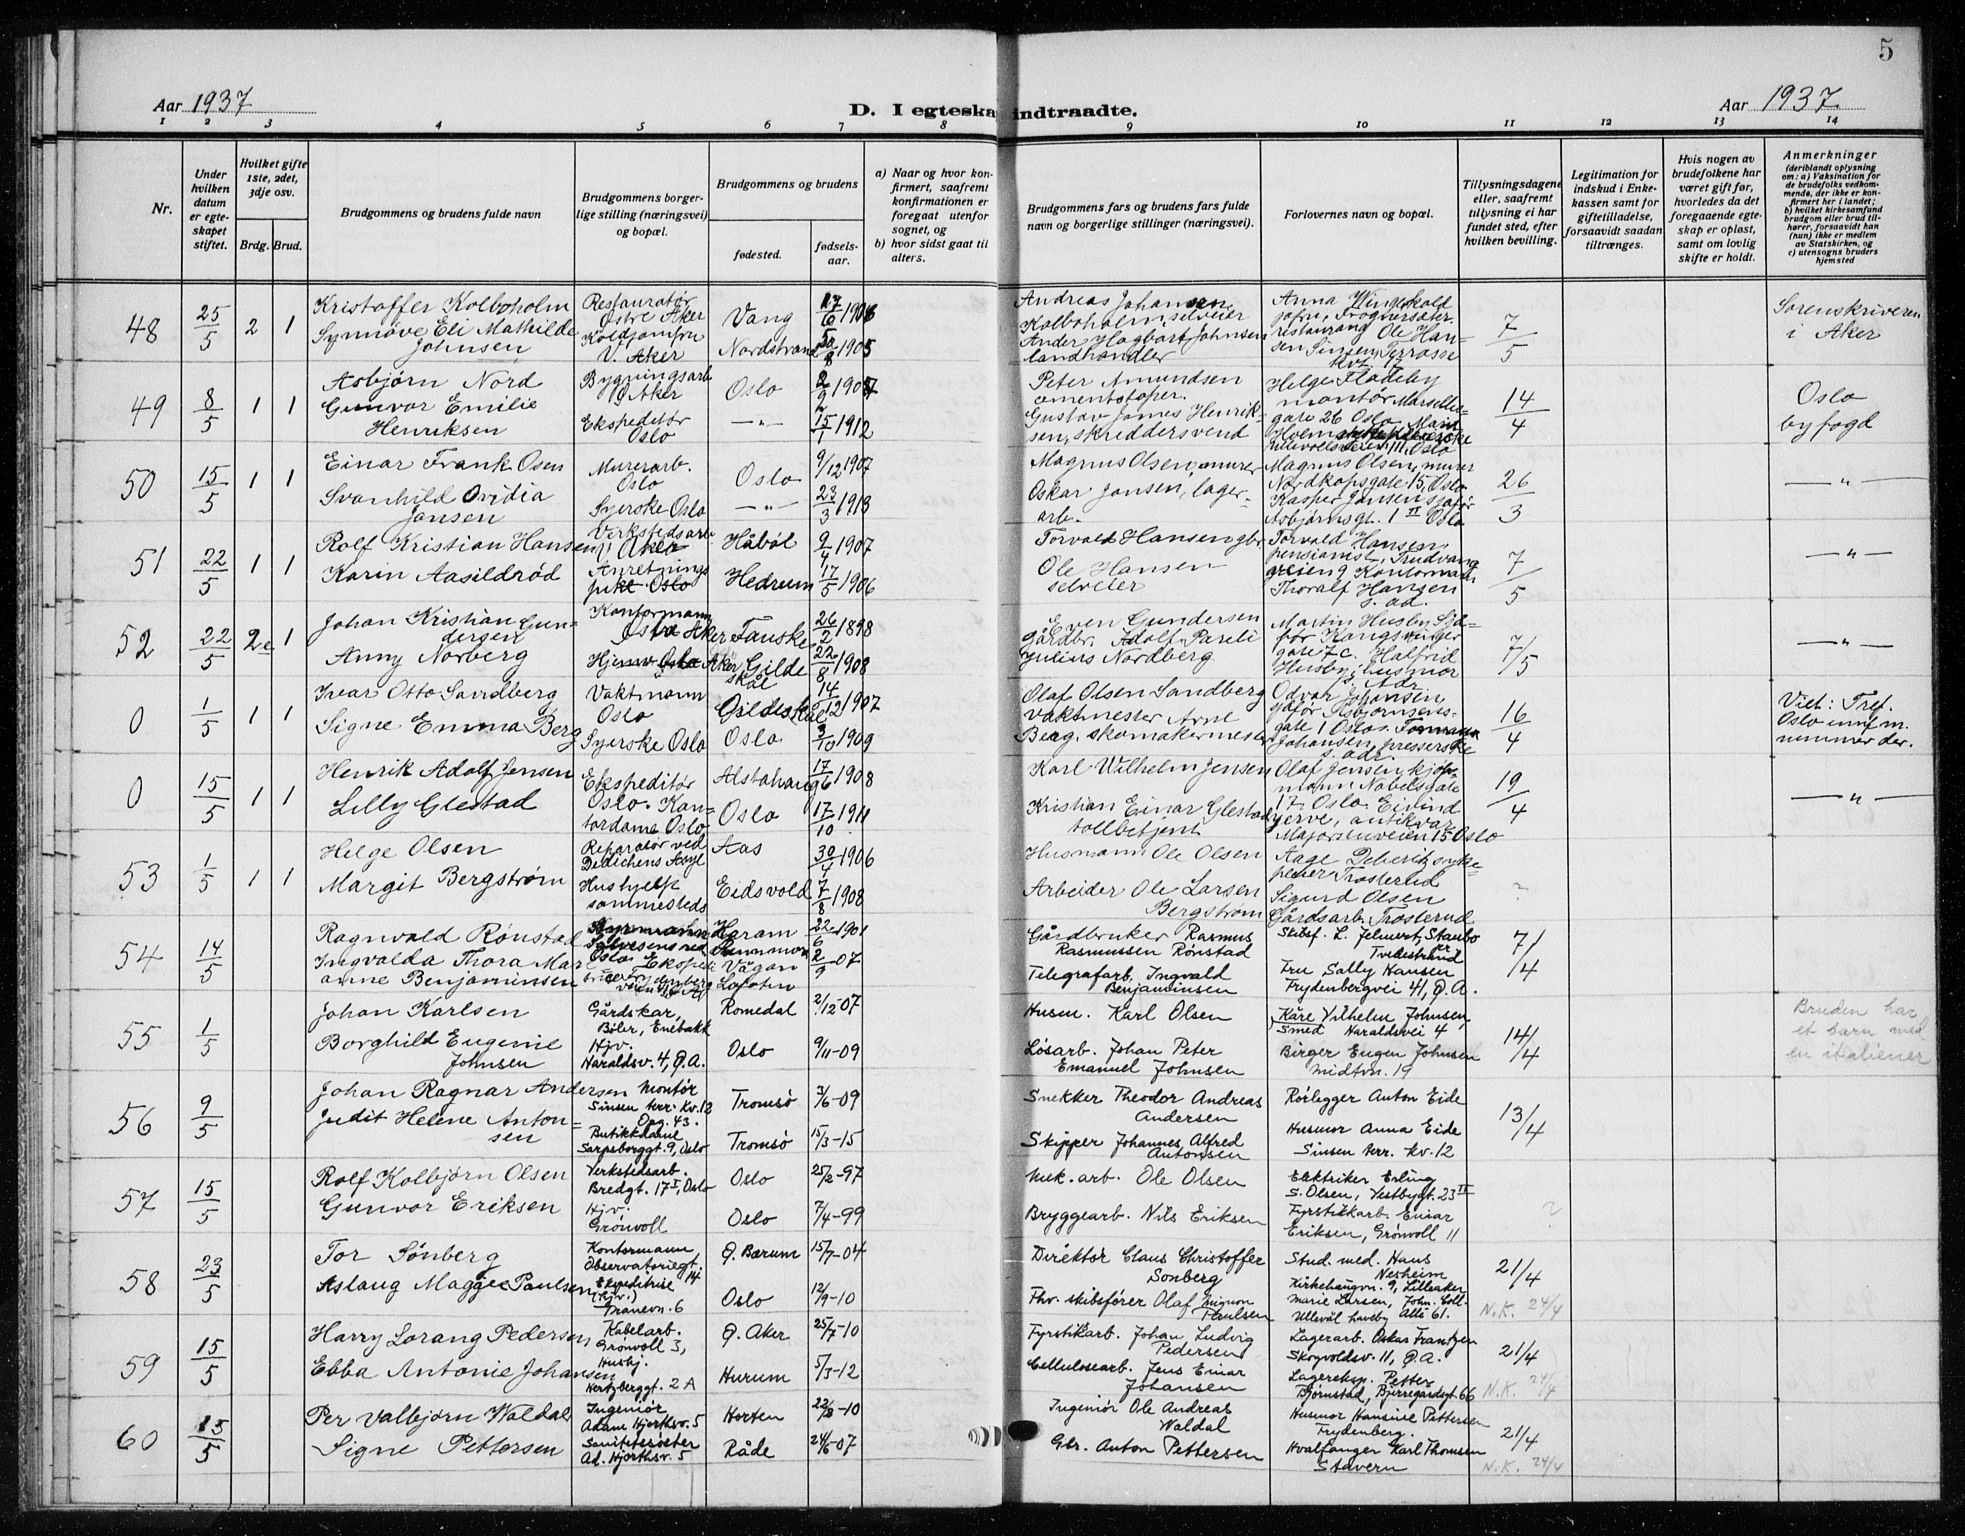 5
Aar 1937
D. I egteska indtraadte.
Aar 1937.
1 2 3 4 5 6 7 8 9 10 11 12 13 14
Nr.
Under hvilken datum er egteskapet stiftet.
Hvilket gifte 1ste, 2det, 3dje osv.
Brdg. Brud.
Brudgommens og brudens fulde navn
Brudgommens borgerlige stilling (næringsvei) og bopæl.
Brudgommens og brudens
fødested.
fødselsaar.
a) Naar og hvor konfirmert, saafremt konfirmationen er foregaat utenfor sognet, og
b) hvor sidst gaat til alters.
Brudgommens fars og brudens fars fulde navn og borgerlige stillinger (næringsvei).
Forlovernes navn og bopæl.
Tillysningsdagene eller, saafremt tillysning ei har fundet sted, efter hvilken bevilling.
Legitimation for indskud i Enkekassen samt for giftetilladelse, forsaavidt saadan tiltrænges.
Hvis nogen av brudefolkene har været gift før, hvorledes da det foregaaende egteskap er opløst, samt om lovlig skifte er holdt.
Anmerkninger
(deriblandt oplysning om: a) Vaksination for de brudefolks vedkommende, der ikke er konfirmert her i landet; b) hvilket kirkesamfund brudgom eller brud tilhører, forsaavidt han (hun) ikke er medlem av Statskirken, og c) utensogns bruders hjemsted
48 25/5 2 1
Kristoffer Kolboholm
Synnøve Eli Mathilde
Johnsen
Restauratør
Østre Aker
Koldjomfru
V. Aker
Vang 17/6 1906
Nordstrand 1905
Andreas Johansen
Kolboholm, selveier
Ander Hagbart Johnsen
landhandler
Anna
restaurang Ole Han-
sen Sinsen Terrasse
7/5
Sorenskriveren
i Aker
49 8/5 1 1
Asbjørn Nord
Gunvor Emilie
Henriksen
Bygningsarb
Aker
Ekspeditør
Oslo
Oslo 1907
—"— 15/1 1912
Peter Amundsen
cementstøper.
Gustav James Henrik-
sen, skreddersvend
Helge Fladeby
montør
gate 26 Oslo
14/4
Oslo
byfogd
50 15/5 1 1
Einar Frank Osen
Svanhild Ovidia
Jansen
Murerarb.
Oslo
Syerske Oslo
Oslo 9/12 1907
—"— 23/3 1913
Magnus Olsen, murer
Oskar Jansen, lager-
arb.
Magnus Olsen, murer
Nordkapsgate 15, Oslo
Kasper Jansen sjafør
Asbjørnsgt. 1 II Oslo
26/3
—"—
51 22/5 1 1
Rolf Kristian Hansen
Karin Aasildrød
Verkstedsarb.
Anretnings
pike Oslo
Håbøl 9/4 1907
Hedrum 17/5 1906
Torvald Hansen gbr
Ole Hansen
selveier
Torvald Hansen
pensionist, Trudvang
veien 9 Kontormann
Thoralf Hansen
s. ad.
7/5
—"—
52 22/5 2e 1
Johan Kristian Gun-
dersen
Anny Norberg
Kontormann
Østre Aker
Fauske 26/2 1898
Gilde
skål 22/8 1908
Even Gundersen
Gårdbr. Adolf Pareli
Julius Nordberg
Martin Husby Sja-
før Kongsvinger
gate 7c. Halfrid
Husby, husmor
s. Adr
7/5
—"—
0 1/5 1 1
Ivar Otto Sandberg
Signe Emma Berg
Vaktmann
Oslo
Syerske Oslo
Gildeskål 14/12 1907
Oslo 3/10 1909
Olaf Olsen Sandberg
vaktmester Arne
Berg, skomakermester
Odvar Johansen
sjafør Asbjørnsens-
gate 1 Oslo
Johansen, presserske
s. adr.
16/4
Viet: Tref.
Oslo innf m.
nummer der.
0 15/5 1 1
Henrik Adolf Jensen
Lilly Glestad
Ekspeditør
Oslo. Kon-
tordame Oslo
Alstahaug 17/6 1908
Oslo 17/10 1911
Karl Wilhelm Jensen
Kristian Einar Glestad
tollbetjent
Olaf Jensen kjøp-
mann Nobelsgate
17, Oslo. Eivind
Jerve, antikvar
Majorstuveien 15 Oslo
19/4
—"—
53 1/5 1 1
Helge Olsen
Margit Bergstrøm
Reparatør ved
Dedichens Asyl
Hushjelp
sammesteds
Aas 30/4 1906
Eidsvold 7/8 1908
Husmann Ole Olsen
Arbeider Ole Larsen
Bergstrøm
Aage syke-
pleier Trosterud
Sigurd Olsen
Gårdsarb. Trosterud
?
54 14/5
Ragnvald Rønstad
Ingvalda Thora Mar
anne Benjaminsen
Haram 22/6 1901
Vågan
Lofoten 2/9 -07
Gårdbruker Rasmus
Rasmussen Rønstad
Telegrafarb. Ingvald
Benjaminsen
Skibsf. L. Jelmert, Staubo
Tvedestrand
Fru Sally Hansen
Frydenbergvei 41, Ø.A.
7/4
55 1/5
Johan Karlsen
Borghild Eugenie
Johnsen
Gårdskar,
Bøler, Enebakk
Hjv.
Haraldsv. 4, Ø.A.
Romedal 2/12-07
Oslo 9/11-09
Husm. Karl Olsen
Løsarb. Johan Peter
Emanuel Johnsen
Kåre Vilhelm Johnsen,
Smed Haraldsvei 4
Birger Eugen Johnsen
Midtm. 19
14/4
Bruden har
et barn med
en italiener
56 9/5
Johan Ragnar Andersen
Judit Helene Anton-
sen
Montør
Sinsen terr. Kv. 12
Opg. 43.
Butikkdame
Sarpsborggt. 9, Oslo
Tromsø 3/6-09
Tromsø 15/3-15
Snekker Theodor Andreas
Andersen
Skipper Johannes Alfred
Antonsen
Rørlegger Anton Eide
Husmor Anna Eide
Sinsen terr. Kv. 12
13/4
57 15/5
Rolf Kolbjørn Olsen
Gunvor Eriksen
Verkstedsarb.
Bredgt. 17 I, Oslo
Hjv.
Grønvoll
Oslo 25/2-97
Oslo 7/4-99
Mek. arb. Ole Olsen
Bryggearb. Nils Eriksen
Elektriker Erling
S. Olsen, Vestbygt. 23 II
Fyrstikkarb. Einar
Eriksen, Grønvoll 11
?
58 23/5
Tor Sønberg
Aslaug Maggie Paulsen
Kontormann,
Observatoriegt.
14
Ekspeditrise
(hjv.)
Granevn. 6
Ø. Bærum 15/7-04
Oslo 12/9-10
Direktør Claus Christoffer
Sonberg
Fhv. skibsfører Olaf Mignon
Paulsen
Stud. med. Hans
Nesheim
Kirkehaugvn. 9, Lilleaker
Marie Larsen, John. Coll.
Ullevål haveby Allé 61.
21/4
N.K. 24/4
59 15/5
Harry Lorang Pedersen
Ebba Antonie Johansen
Kabelarb.
Grønvoll 3,
Hushj.
Hertzberggt. 2 A
Ø. Aker 25/7-10
Hurum 5/3-12
Fyrstikarb. Johan Ludvig
Pedersen
Cellulosearb. Jens Einar
Johansen
Lagerarb. Oskar Frantzen
Skogvoldsv. 11, Ø.A.
Lagereksp. Petter
Bjørnstad, Bjerregårdsgt. 66
21/4
N.K. 24/4
60 15/5
Per Valbjørn Waldal
Signe Pettersen
Ingeniør
Adam Hjorthsv. 5
Sanitetssøster
Ad. Hjorthsv. 5
Horten 22/8-10
Råde 24/6-07
Ingeniør Ole Andreas
Waldal
Gbr. Anton Pettersen
Husmor Hansine Pettersen
Frydenberg.
Hvalfanger Karl Thomsen
Stavern
21/4
N.K. 24/4